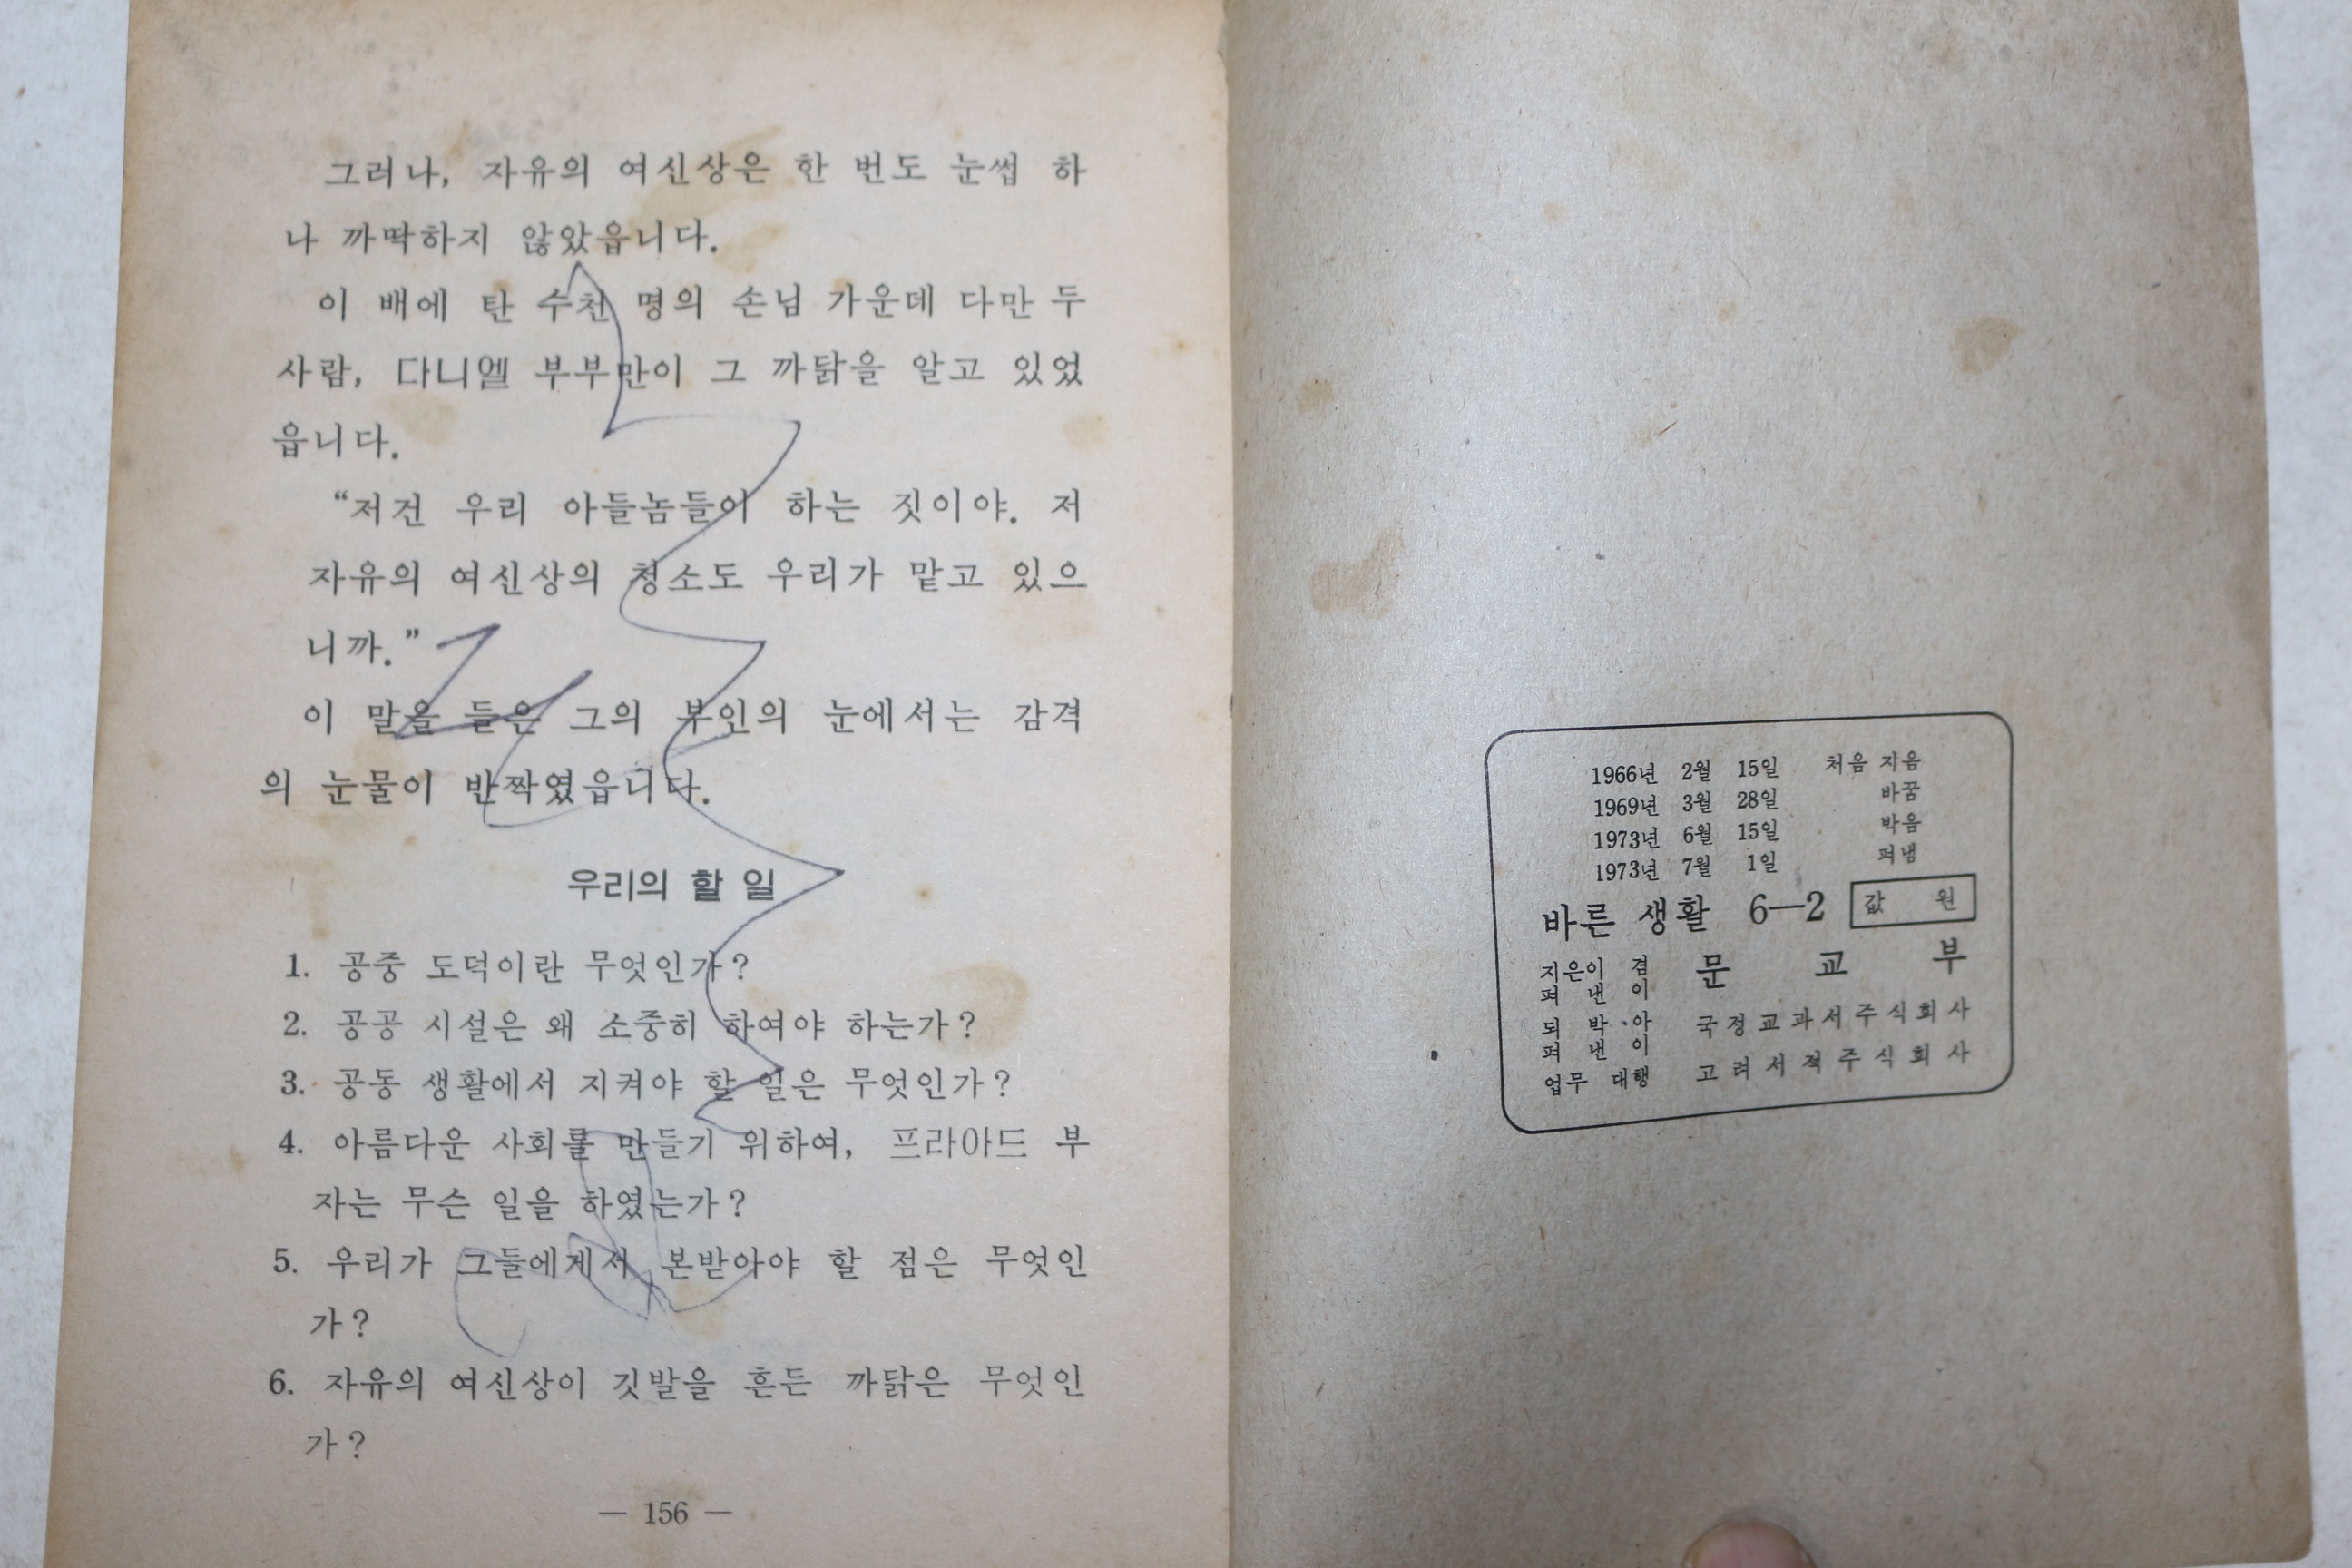 그러나, 자유의 여신상은 한 번도 눈썹 하
나 까딱하지 않았읍니다.
이 배에 탄 수천 명의 손님 가운데 다만 두
사람, 다니엘 부부만이 그 까닭을 알고 있었
읍니다.
“저건 우리 아들놈들이 하는 짓이야. 저
자유의 여신상의 청소도 우리가 맡고 있으
니까.”
이 말을 들은 그의 부인의 눈에서는 감격
의 눈물이 반짝였읍니다.
우리의 할 일
1. 공중 도덕이란 무엇인가?
2. 공공 시설은 왜 소중히 하여야 하는가?
3. 공동 생활에서 지켜야 할 일은 무엇인가?
4. 아름다운 사회를 만들기 위하여, 프라아드 부
자는 무슨 일을 하였는가?
5. 우리가 그들에게서 본받아야 할 점은 무엇인
가?
6. 자유의 여신상이 깃발을 흔든 까닭은 무엇인
가?
— 156 —
1966년 2월 15일 처음 지음
1969년 3월 28일 바꿈
1973년 6월 15일 박음
1973년 7월 1일 펴냄
바른 생활 6—2 값 원
지은이 겸
펴 낸 이 문 교 부
되 박아
펴 낸 이 국정교과서주식회사
업무 대행 고려서적주식회사